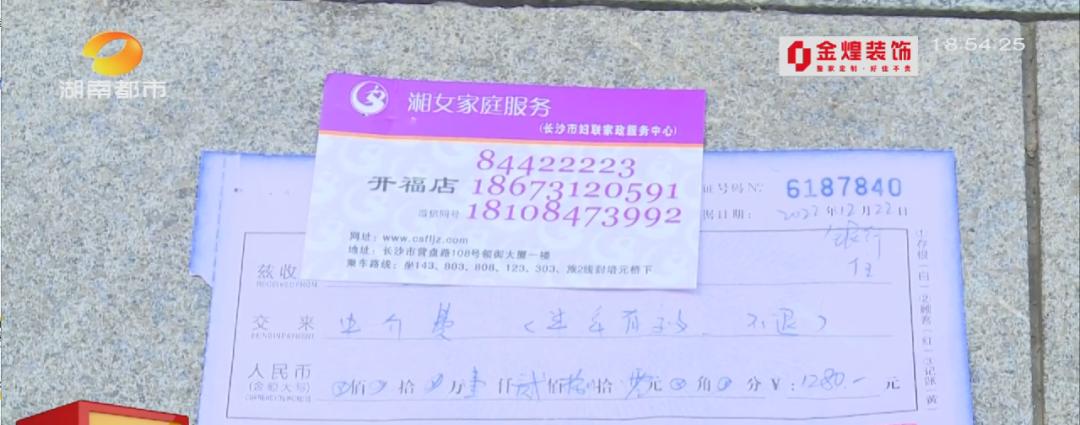 湖南都市
金煌装饰
整家定制·好住不贵
18:54:25
湘女家庭服务
(长沙市妇联家政服务中心)
84422223
开福店 18673120591
微信同号 18108473992
网址：www.csfljz.com
地址：长沙市营盘路108号领御大厦一楼
乘车路线：坐143、803、808、123、303、旅2线到培元桥下
证号码 №. 6187840
据日期：2022年12月22日
银行
兹收
RECEIVED FROM
交来 中介费 (
不退)
人民币
(金额大写)
佰 拾 万 壹 仟 贰 佰 拾 元 角 分 ￥：1280.- 元
①存根(白)②顾客(红)③记账(黄)